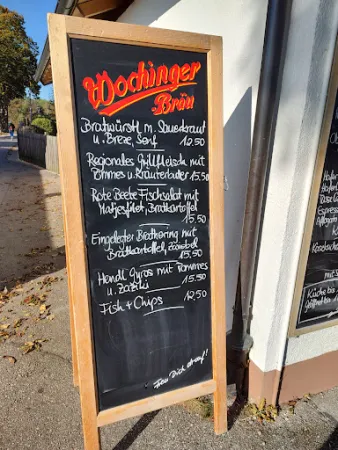 Wochinger
Bräu
Bratwürstl m. Sauerkraut
u. Breze, Senf 12.50
Regionales Grillfleisch mit
Pommes u. Kräuterbutter 15.50
Rote Beete Fischsalat mit
Matjesfilet, Bratkartoffel
15.50
Eingelegter Brathering mit
Bratkartoffel, Zwiebel
15.50
Hendl Gyros mit Pommes
u. Zaziki 15.50
Fish + Chips 12.50
Freu Dich drauf!!